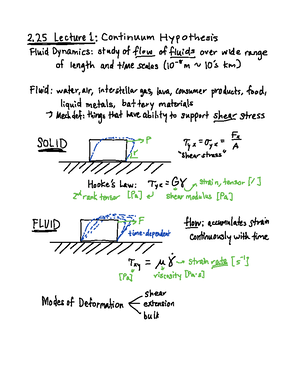 2.25 Lecture 1: Continuum Hypothesis
Fluid Dynamics: study of flow of fluids over wide range
of length and time scales (10⁻⁸ m ~ 10's km)
Fluid: water, air, interstellar gas, lava, consumer products, food,
liquid metals, battery materials
↳ Mech def: things that have ability to support shear stress
SOLID
τyx = σyx = Fx/A
"shear stress"
Hooke's Law: τyx = Gγ → strain, tensor [/]
2nd rank tensor [Pa] shear modulus [Pa]
FLUID
F
time-dependent
flow: accumulates strain
continuously with time
τxy = μγ̇ → strain rate [s⁻¹]
[Pa] viscosity [Pa·s]
Modes of Deformation
shear
extension
bulk